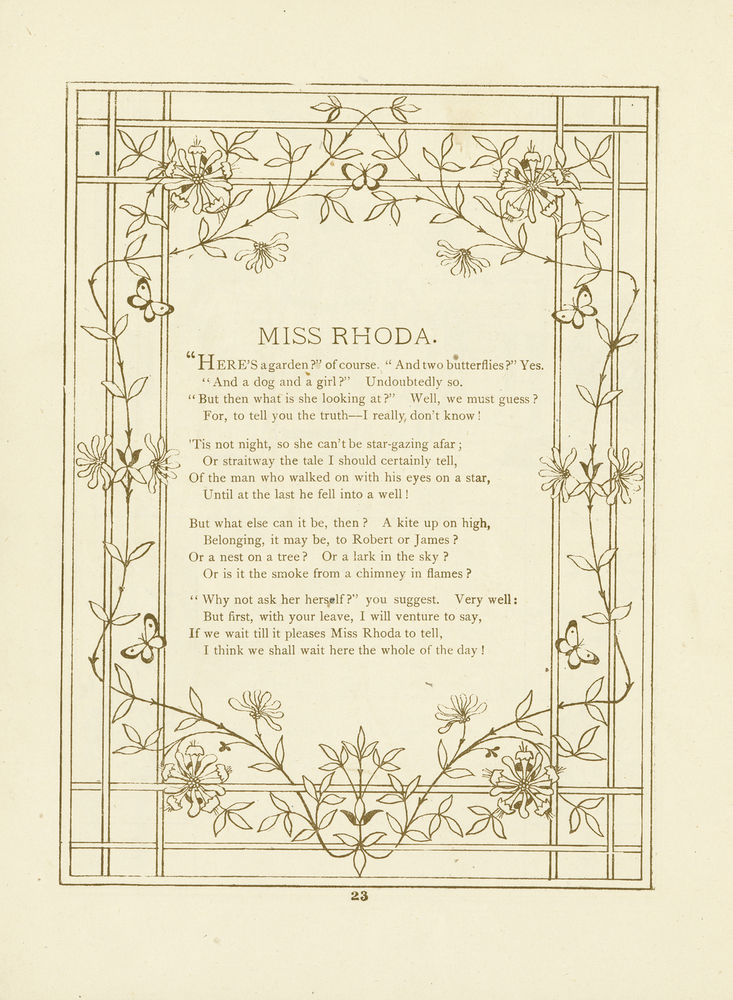 MISS RHODA.
“HERE'S a garden?” of course. “And two butterflies?” Yes.
“And a dog and a girl?” Undoubtedly so.
“But then what is she looking at?” Well, we must guess?
For, to tell you the truth—I really, don't know!
'Tis not night, so she can't be star-gazing afar;
Or straitway the tale I should certainly tell,
Of the man who walked on with his eyes on a star,
Until at the last he fell into a well!
But what else can it be, then? A kite up on high,
Belonging, it may be, to Robert or James?
Or a nest on a tree? Or a lark in the sky?
Or is it the smoke from a chimney in flames?
“Why not ask her herself?” you suggest. Very well:
But first, with your leave, I will venture to say,
If we wait till it pleases Miss Rhoda to tell,
I think we shall wait here the whole of the day!
23